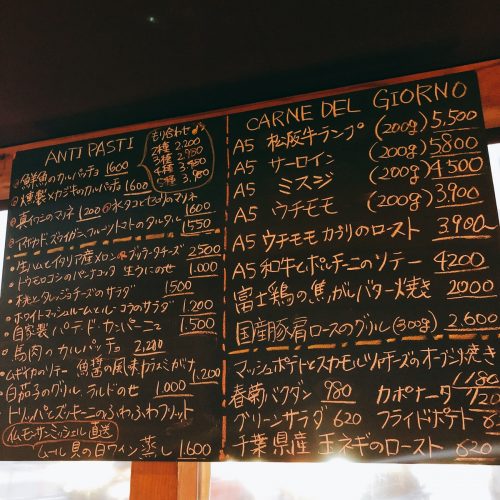 ANTIPASTI
もり合わせ
2種 2.200
3種 2.980
4種 3.450
5種 3.980
鮮魚のカルパッチョ 1600
燻製カジキのカルパッチョ 1600
真イワシのマリネ 1200 水タコとセロリのマリネ 1600
フルーツトマトのタルタル 1550
生ハムとイタリア産メロン ブッラータチーズ 2500
トウモロコシのパンナコッタ 生うにのせ 1.000
桃とタレッジョチーズのサラダ 1500
ホワイトマッシュルームとルーコラのサラダ 1.200
自家製 パテ・ド・カンパーニュ 1.500
馬肉のカルパッチョ 2.200
ムギイカのソテー 魚醤の風味 1.200
白茄子のグリル、ラルドのせ 1.000
トリッパとズッキーニのふわふわフリット
モンサンミッシェル 直送
ムール貝の白ワイン蒸し 1.600
CARNE DEL GIORNO
A5 松阪牛ランプ (200g) 5.500
A5 サーロイン (200g) 5800
A5 ミスジ (200g) 4500
A5 ウチモモ (200g) 3.900
A5 ウチモモ かぶりのロースト 3.900
A5 和牛とポルチーニのソテー 4200
富士鶏の焦がしバター焼き 2000
国産豚肩ロースのグリル (300g) 2.600
マッシュポテトとスカモルツァチーズのオーブン焼き 1180
春菊バクダン 980 カポナータ
グリーンサラダ 620 フライドポテト
千葉県産 玉ネギのロースト 820